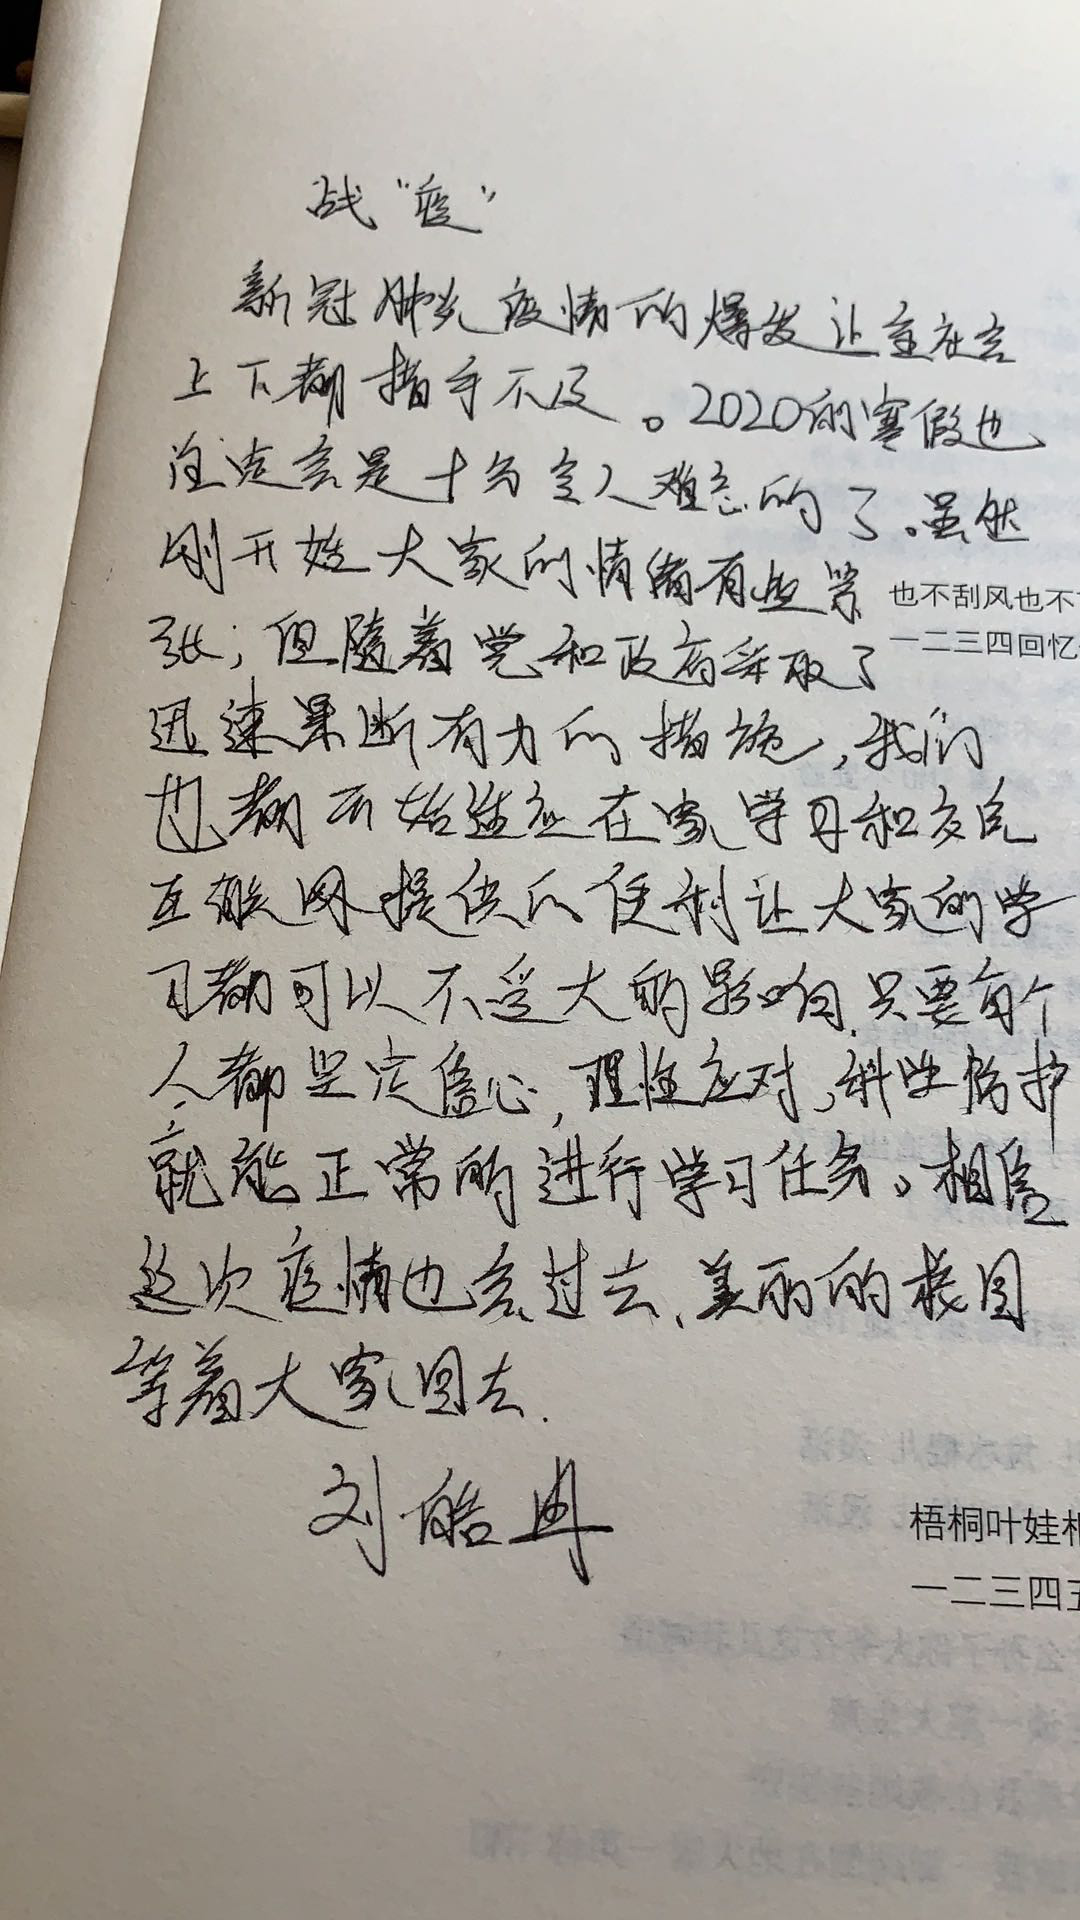 战“疫”
新冠肺炎疫情的爆发让全社会
上下都措手不及。2020的寒假也
注定会是十分令人难忘的了。虽然
刚开始大家的情绪有些紧
张；但随着党和政府采取了
迅速果断有力的措施，我们
也都开始适应在家学习和
互联网提供的便利让大家的学
习都可以不受大的影响.只要每个
人都坚定信心，理性应对，科学防护
就能正常的进行学习任务。相信
这次疫情也会过去、美丽的校园
等着大家回去.
刘皓冉
也不刮风也不
一二三四回忆
梧桐叶娃
一二三四五